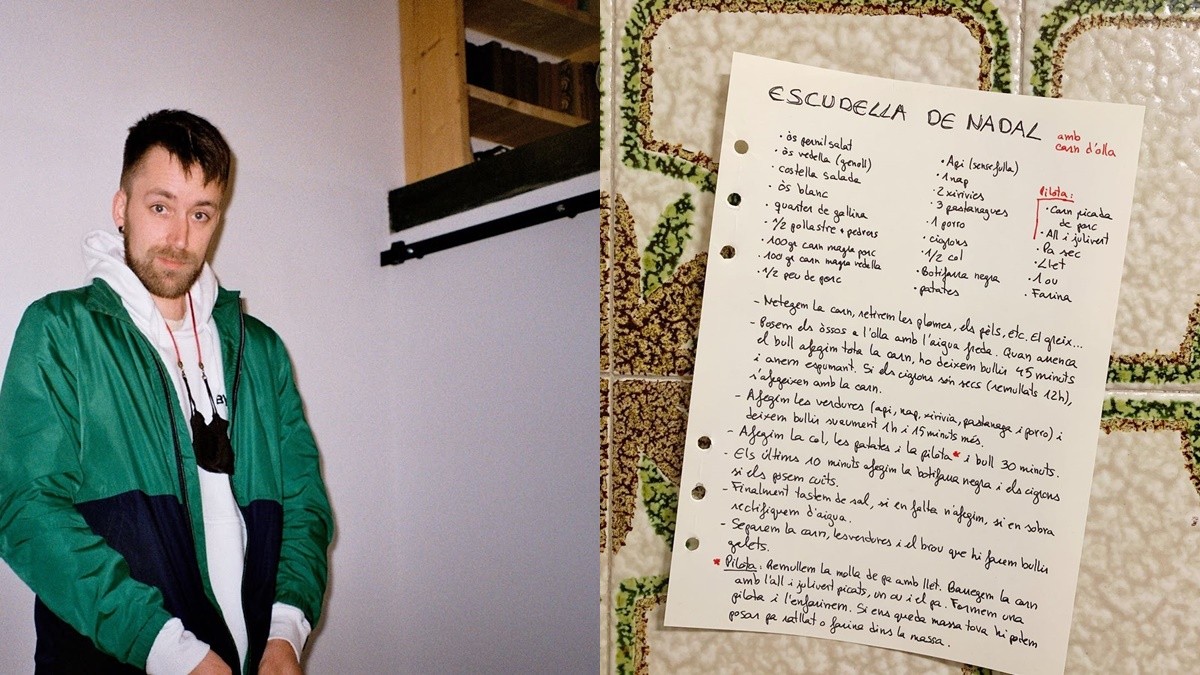 ay
ESCUDELLA DE NADAL
amb
carn d'olla
· òs pernil salat
· òs vedella (genoll)
· costella salada
· òs blanc
· quarter de gallina
· 1/2 pollastre + pedrers
· 100gr carn magra porc
· 100gr carn magra vedella
· 1/2 peu de porc
· Api (sense fulla)
· 1 nap
· 2 xirivies
· 3 pastanagues
· 1 porro
· cigrons
· 1/2 col
· Botifarra negra
· patates
Pilota:
· Carn picada
de porc
· All i julivert
· Pa sec
· Llet
· 1 ou
· Farina
- Netegem la carn, retirem les plomes, els pèls, etc. El greix...
- Posem els òssos a l'olla amb l'aigua freda. Quan arrenca
el bull afegim tota la carn, ho deixem bullir 45 minuts
i anem espumant. Si els cigrons són secs (remullats 12h),
s'afegeixen amb la carn.
- Afegim les verdures (api, nap, xirivia, pastanaga i porro) i
deixem bullir suaument 1h i 15 minuts més.
- Afegim la col, les patates i la pilota* i bull 30 minuts.
- Els últims 10 minuts afegim la botifarra negra i els cigrons
si els posem cuits.
- Finalment tastem de sal, si en falta n'afegim, si en sobra
rectifiquem d'aigua.
- Separem la carn, les verdures i el brou que hi farem bullir
galets.
* Pilota: Remullem la molla de pa amb llet. Barregem la carn
amb l'all i julivert picats, un ou i el pa. Formem una
pilota i l'enfarinem. Si ens queda massa tova hi podem
posar pa ratllat o farina dins la massa.